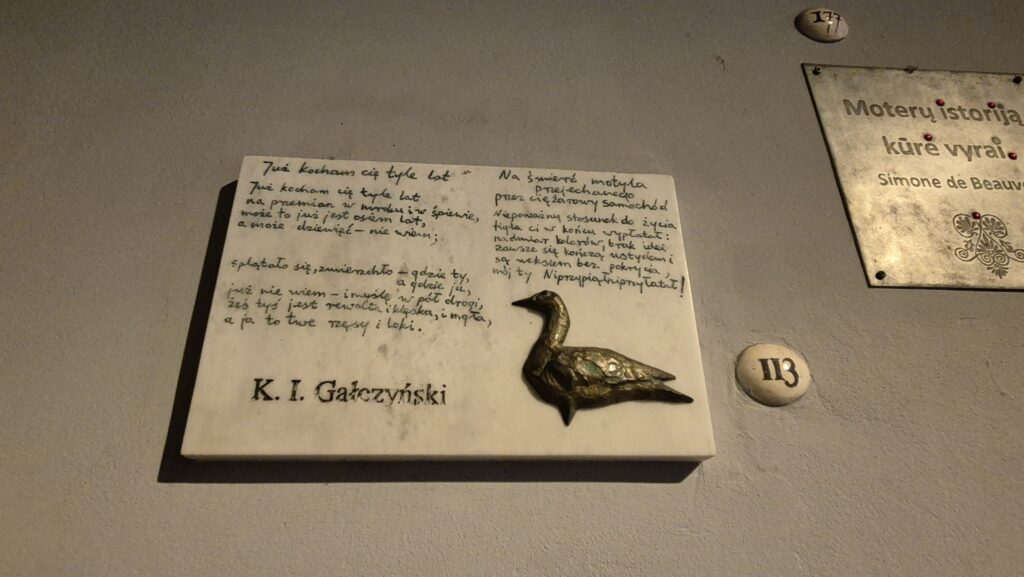 177
Moterų istoriją
kūrė vyrai.
Simone de Beauv
Już kocham cię tyle lat
Już kocham cię tyle lat
na przemian w mroku i w śpiewie,
może to już jest osiem lat,
a może dziewięć – nie wiem;
splątało się, zmierzchło – gdzie ty,
a gdzie ja,
już nie wiem – i myślę w pół drogi,
żeś tyś jest rewolta i klęska, i mgła,
a ja to twe rzęsy i loki.
K. I. Gałczyński
Na śmierć motyla
przejechanego
przez ciężarowy samochód
Niepoważny stosunek do życia
figla ci w końcu wypłatał:
nadmiar kolorów, brak idei
zawsze się kończą wstydem i
są wekslem bez pokrycia,
mój ty !
113